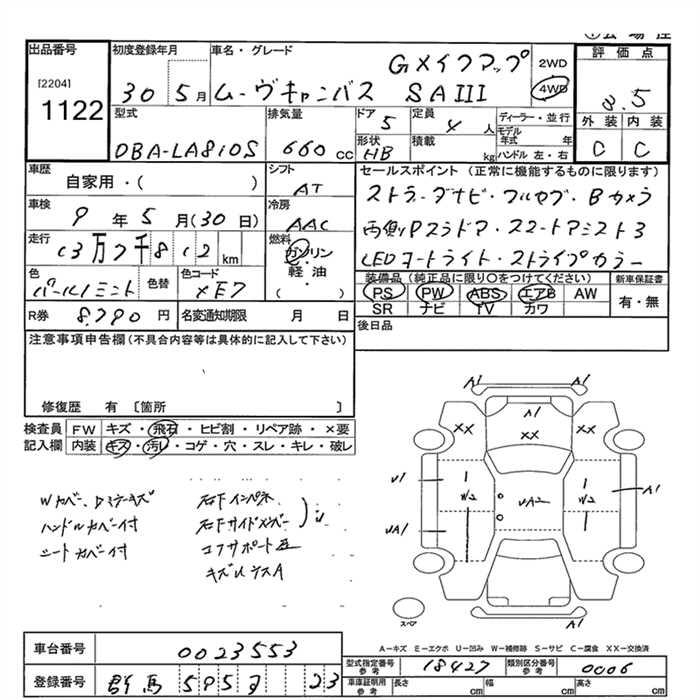 出品番号
[2204]
1122
初度登録年月
30 5月
車名・グレード
Gメイクアップ
ムーヴキャンバス SAIII
2WD
4WD
評価点
3.5
外装 内装
C C
型式
DBA-LA810S
排気量
660 cc
ドア
5
定員
4 人
形状
HB
積載
kg
ディーラー・並行
モデル年式 年
ハンドル 左・右
車歴
自家用・( )
シフト
AT
車検
9年5月(30日)
冷房
AAC
走行
13万7千812 km
燃料
ガソリン・軽油・( )
色
パール/ミント
色替
色コード
XE7
R券 8,790円
名変通知期限 月 日
セールスポイント (正常に機能するものに限ります)
ストラーダナビ・フルセグ・Bカメラ
両側Pスラドア・スマートアシスト3
LEDヘッドライト・ストライプカラー
装備品(純正品に限り○をつけてください)
PS PW ABS エアB AW
SR ナビ TV カワ
新車保証書
有・無
後日品
注意事項申告欄(不具合内容等は具体的に記入して下さい)
修復歴 有 〔箇所 〕
検査員記入欄
FW キズ・飛石・ヒビ割・リペア跡・×要
内装 キズ・汚レ・コゲ・穴・スレ・キレ・破レ
ハンドルカバー付
シートカバー付
石下インパネ
石下サイドメンバー
コアサポート
A1
A1
XX XX XX
U1
W2
UA2
W2
A1
UA1
A1
スペア
A-キズ E-エクボ U-凹み W-補修跡 S-サビ C-腐食 XX-交換済
車台番号
0023553
登録番号
群馬 595 23
型式指定番号 参考
18427
類別区分番号 参考
0006
車庫証明用 参考
長さ cm 幅 cm 高さ cm